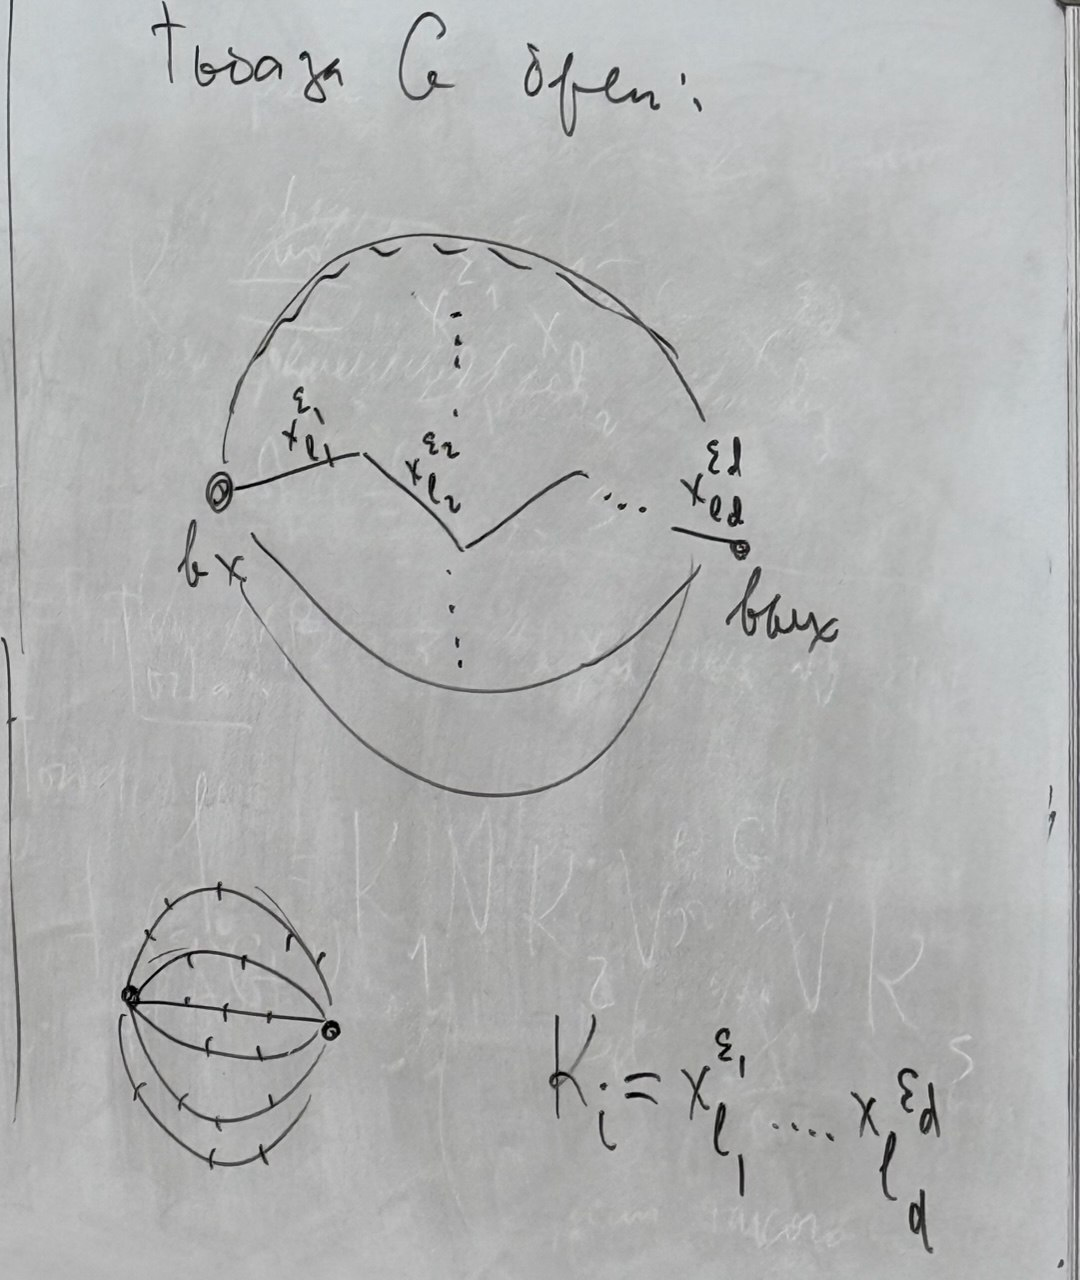 Тогда G орел:
x_{l_1}^{ε_1} x_{l_2}^{ε_2} ... x_{l_d}^{ε_d}
вх
вых
K_i = x_{l_1}^{ε_1} .... x_{l_d}^{ε_d}